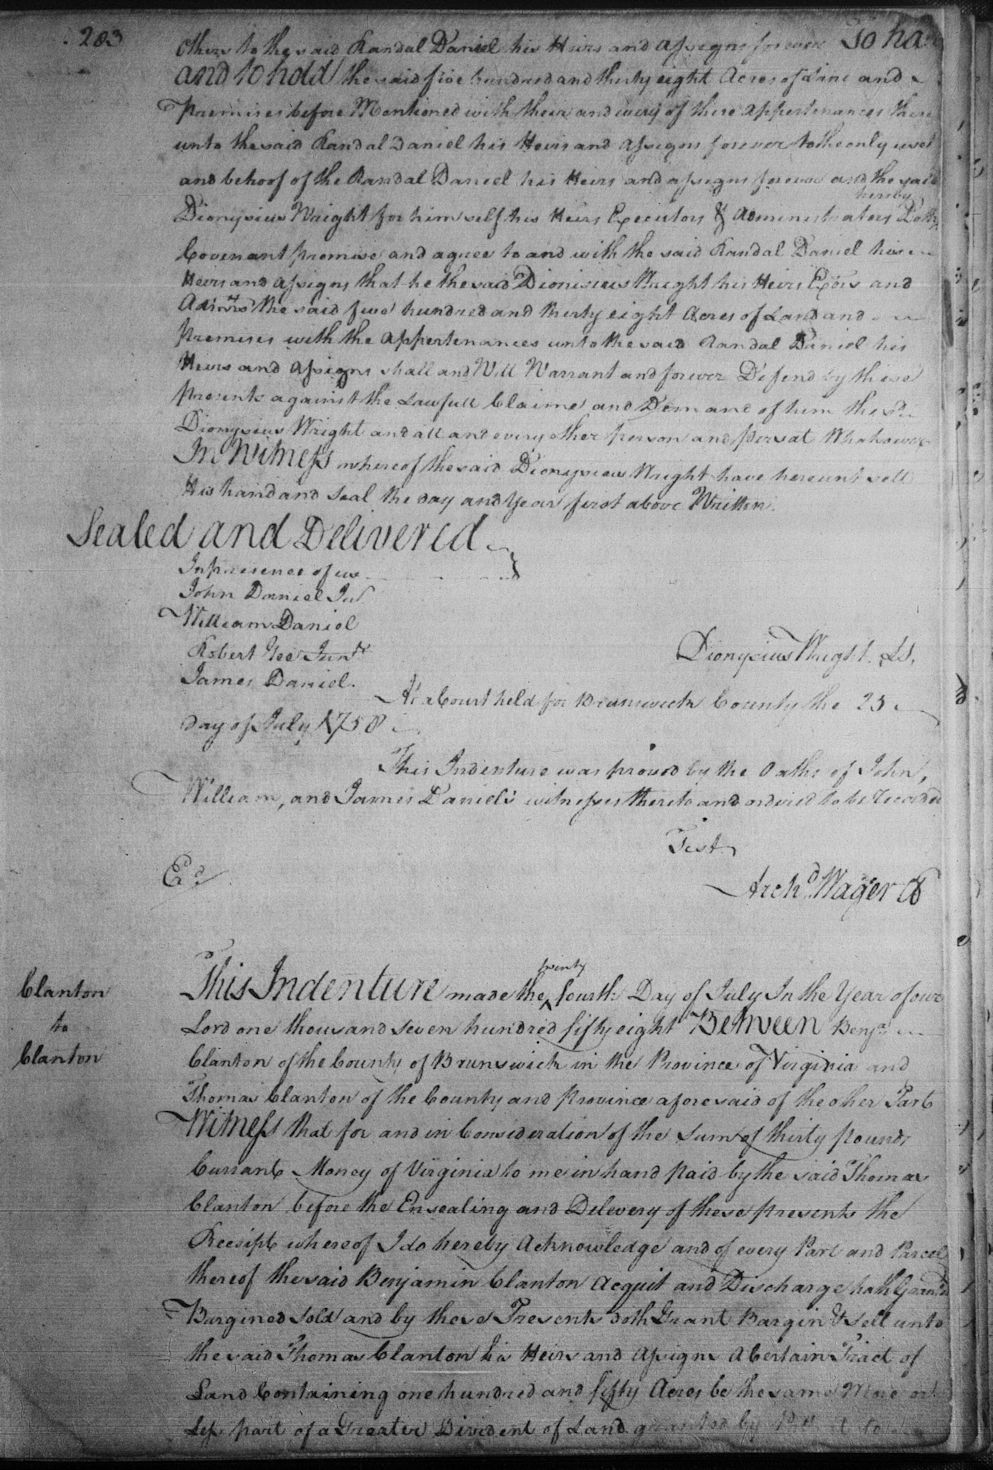 203
others to the said Randal Daniel his Heirs and Assigns forever To ha
and to hold the said five hundred and thirty eight Acres of Land and
Premises before Mentioned with their and every of there Appertenances there
unto the said Randal Daniel his Heirs and Assigns forever to the only use
and behoof of the Randal Daniel his Heirs and assigns forever and the said
hereby
Dionysius Wright for him self his Heirs Executors & Administrators Doth
Covenant promise and agree to and with the said Randal Daniel his
Heirs and Assigns that he the said Dionisius Wright his Heirs Exors and
Admrs the said five hundred and thirty eight Acres of Land and
Premises with the Appertenances unto the said Randal Daniel his
Heirs and Assigns shall and Will Warrant and forever Defend by these
presents against the Lawfull Claime and Demand of him the sd
Dionysius Wright and all and every other person and persat Whatsoever
In Witness whereof the said Dionysius Wright have hereunt sett
His hand and Seal the day and Year first above Written.
Sealed and Delivered
In presence of us
John Daniel Jur
William Daniel
Robert Gee Junr
James Daniel.
Dionysius Wright. LS.
At a Court held for Brunswick County the 25
day of July 1758
This Indenture was proved by the Oaths of John,
William, and James Daniels witnesses thereto and ordered to be recorded
Test
Exd
Archd Wager
Clanton
to
Clanton
twenty
This Indenture made the fourth Day of July In the Year of our
Lord one thousand seven hundred fifty eight Between Benja
Clanton of the County of Brunswick in the Province of Virginia and
Thomas Clanton of the County and Province aforesaid of the other Part
Witness that for and in Consideration of the Sum of thirty pounds
Currant Money of Virginia to me in hand paid by the said Thomas
Clanton before the Ensealing and Delevery of these presents the
Receipt whereof I do hereby Acknowledge and of every Part and Parcel
thereof the said Benjamin Clanton Acquit and Discharge hath Grantd
Bargined Sold and by these Presents doth Grant Bargin & sell unto
the said Thomas Clanton his Heirs and Assigns A Certain Tract of
Land Containing one hundred and fifty Acres be the same More or
Less part of a Greater Divident of Land granted by